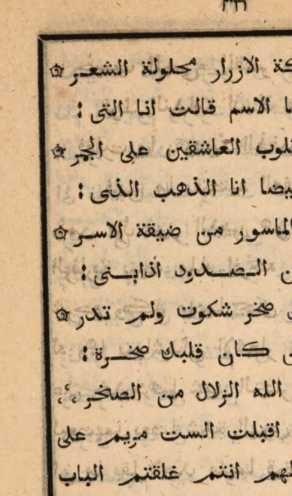 ٣٣٦
كة الازرار محلولة الشعر
ما الاسم قالت انا التى :
قلوب العاشقين على الجمر
بيضا انا الذهب الذى :
الماسور من ضيقة الاسر
ن الصدود أذابنى :
صخر شكوت ولم تدر
ن كان قلبك صخرة :
الله الزلال من الصخر
اقبلت الست مريم على
لهم انتم غلقتم الباب